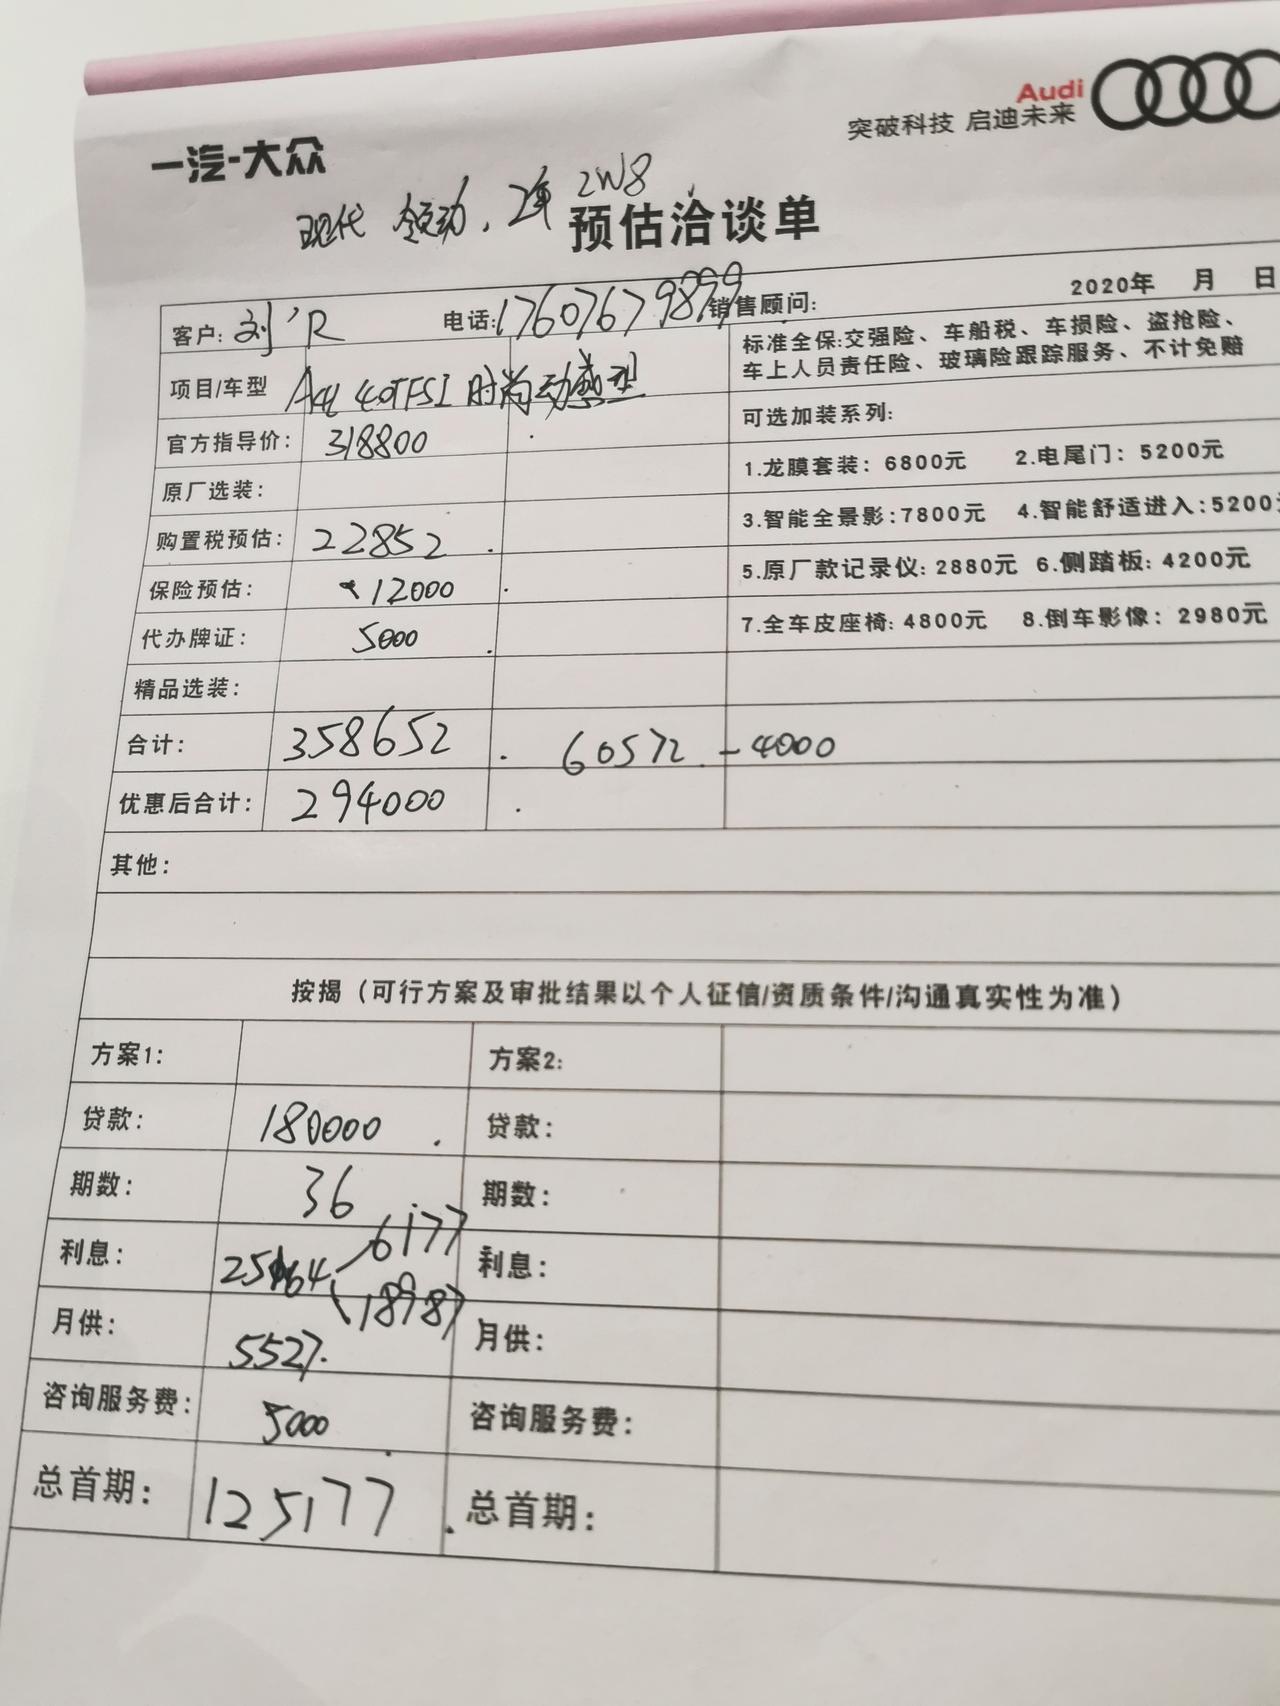 Audi
突破科技 启迪未来
一汽-大众
现代 领动, 2年 2W8
预估洽谈单
2020年 月 日
客户: 刘'R 电话:17607679899 销售顾问:
项目/车型 A4L 40TFSI 时尚动感型
标准全保:交强险、车船税、车损险、盗抢险、
车上人员责任险、玻璃险跟踪服务、不计免赔
官方指导价: 318800
可选加装系列:
原厂选装:
1.龙膜套装: 6800元 2.电尾门: 5200元
购置税预估: 22852
3.智能全景影:7800元 4.智能舒适进入:5200元
保险预估: 12000
5.原厂款记录仪: 2880元 6.侧踏板: 4200元
代办牌证: 5000
7.全车皮座椅: 4800元 8.倒车影像: 2980元
精品选装:
合计: 358652 60572 -4000
优惠后合计: 294000
其他:
按揭(可行方案及审批结果以个人征信/资质条件/沟通真实性为准)
方案1: 方案2:
贷款: 180000 贷款:
期数: 36 期数:
利息: 25164 6177 利息:
18987
月供: 5527 月供:
咨询服务费: 5000 咨询服务费:
总首期: 125177 总首期: